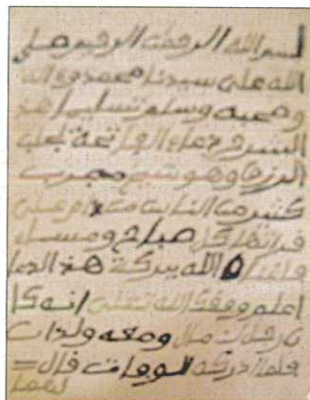 بسم الله الرحمن الرحيم صلى
الله على سيدنا محمد وءاله
وصحبه وسلم تسليما هذا
الشروع دعاء الفاتحة لجلب
الرزق وهو شيء مجرب
كثير من الناس من دام على
قراءتها كل صباح ومساء
الله ببركة هذا الدعا
اعلم وفقك الله تعلى انه كا
ن رجل له مال ومعه ولدان
فلما ادركته الوفات قال
لهما